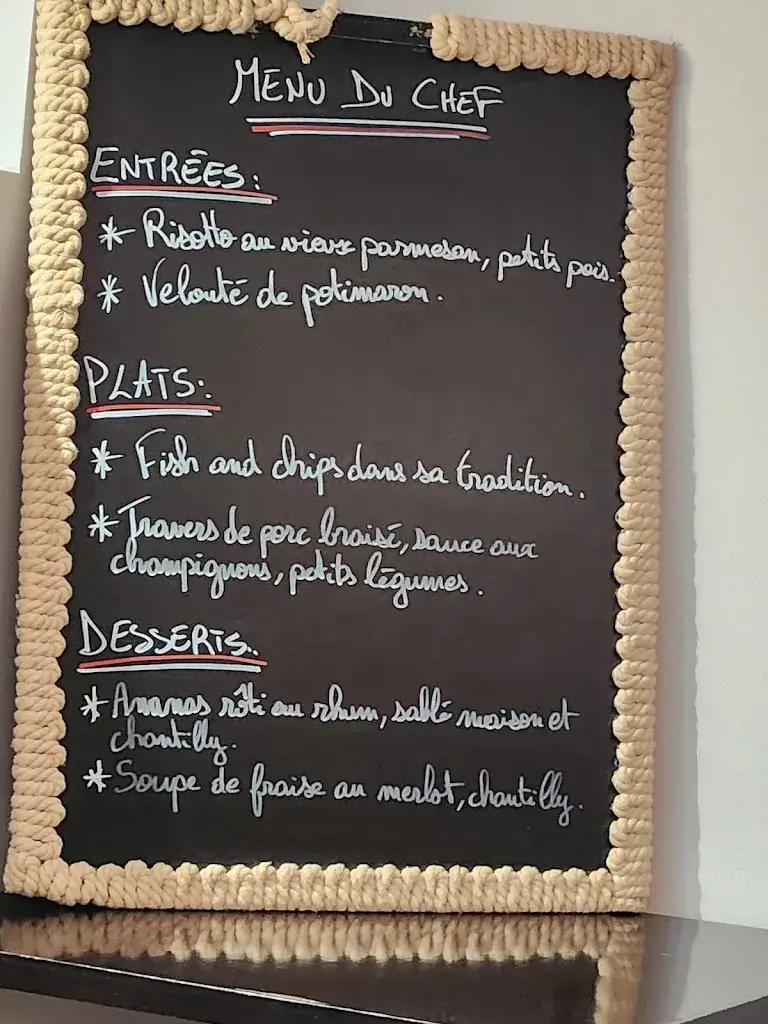 MENU DU CHEF
ENTRÉES:
* Risotto au vieux parmesan, petits pois.
* Velouté de potimaron.
PLATS:
* Fish and chips dans sa tradition.
* Travers de porc braisé, sauce aux
champignons, petits légumes.
DESSERTS..
* Ananas rôti au rhum, sablé maison et
chantilly.
* Soupe de fraise au merlot, chantilly.